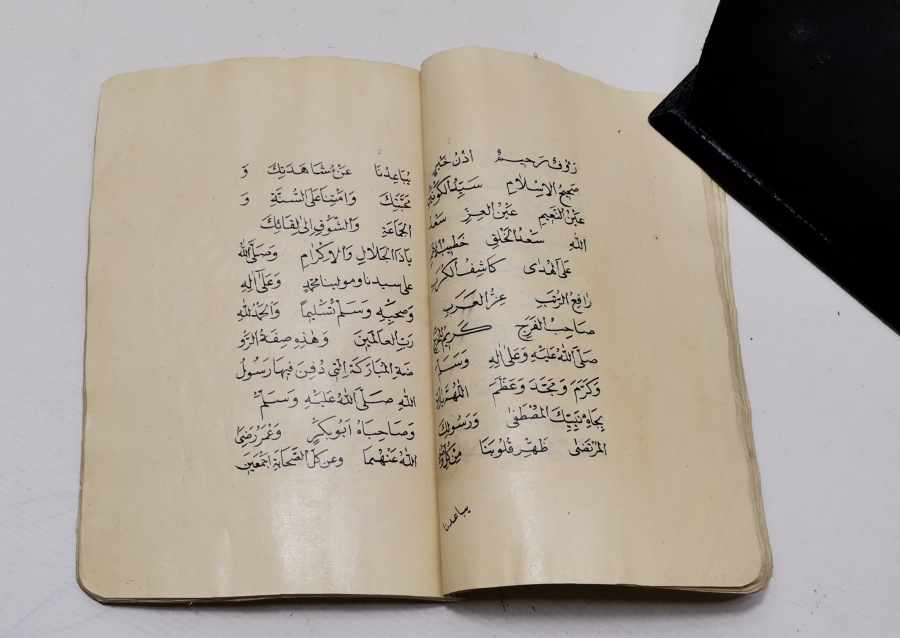 رَؤُفٌ رَحِيمٌ اُذُنُ خَيْرٍ
صَحِيحُ الْاِسْلَامِ سَيِّدُ الْكَوْنَيْنِ
عَيْنُ النَّعِيمِ عَيْنُ الْعِزِّ سَعْدُ
اللهِ سَعْدُ الْخَلْقِ خَطِيبُ الْاُمَمِ
عَلَمُ الْهُدَى كَاشِفُ الْكُرَبِ
رَافِعُ الرُّتَبِ عِزُّ الْعَرَبِ
صَاحِبُ الْفَرَجِ كَرِيمُ الْمَخْرَجِ
صَلَّى اللهُ عَلَيْهِ وَعَلَى اٰلِهِ وَسَلَّمَ
وَكَرَّمَ وَمَجَّدَ وَعَظَّمَ اللّٰهُمَّ يَارَبِّ
بِجَاهِ نَبِيِّكَ الْمُصْطَفَى وَرَسُولِكَ
الْمُرْتَضَى طَهِّرْ قُلُوبَنَا مِنْ كُلِّ
يباعدنا
يُبَاعِدُنَا عَنْ مُشَاهَدَتِكَ وَ
مَحَبَّتِكَ وَاَمِتْنَا عَلَى السُّنَّةِ وَ
الْجَمَاعَةِ وَالشَّوْقِ اِلٰى لِقَائِكَ
يَاذَا الْجَلَالِ وَالْاِكْرَامِ وَصَلَّى اللهُ
على سيدنا ومولينا محمد وَعَلٰى اٰلِهِ
وَصَحْبِهِ وَسَلَّمَ تَسْلِيمًا وَالْحَمْدُ لِلّٰهِ
رَبِّ الْعَالَمِينَ وَهٰذِهِ صِفَةُ الرَّوْ
ضَةِ الْمُبَارَكَةِ الَّتِي دُفِنَ فِيهَا رَسُولُ
اللهِ صَلَّى اللهُ عَلَيْهِ وَسَلَّمَ
وَصَاحِبَاهُ اَبُو بَكْرٍ وَعُمَرُ رَضِىَ
اللهُ عَنْهُمَا وَعَنْ كُلِّ الصَّحَابَةِ اَجْمَعِينَ